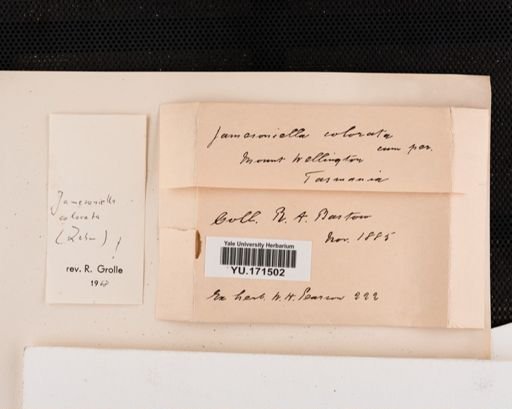 Jamesoniella
colorata
(Lehm)!
rev. R. Grolle
Jamesoniella colorata
cum per.
Mount Wellington
Tasmania
Coll. R. A. Bastow
Nov. 1885
Yale University Herbarium
YU.171502
Ex herb. W. H. Pearson 222